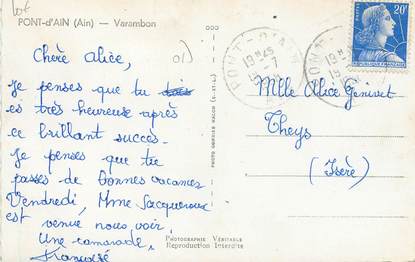 PONT-d'AIN (Ain) - Varambon
Chère Alice,
Je penses que tu
es très heureuse après
ce brillant succès.
Je penses que tu
passes de bonnes vacances
Vendredi, Mme Sacqueroux
est venue nous voir.
Une camarade,
Françoise
PHOTOGRAPHIE VÉRITABLE
Reproduction Interdite
PONT-D'AIN
19H45
-7
20F
POSTES
REPUBLIQUE FRANÇAISE
Mlle Alice Genivet
Theys
(Isère)